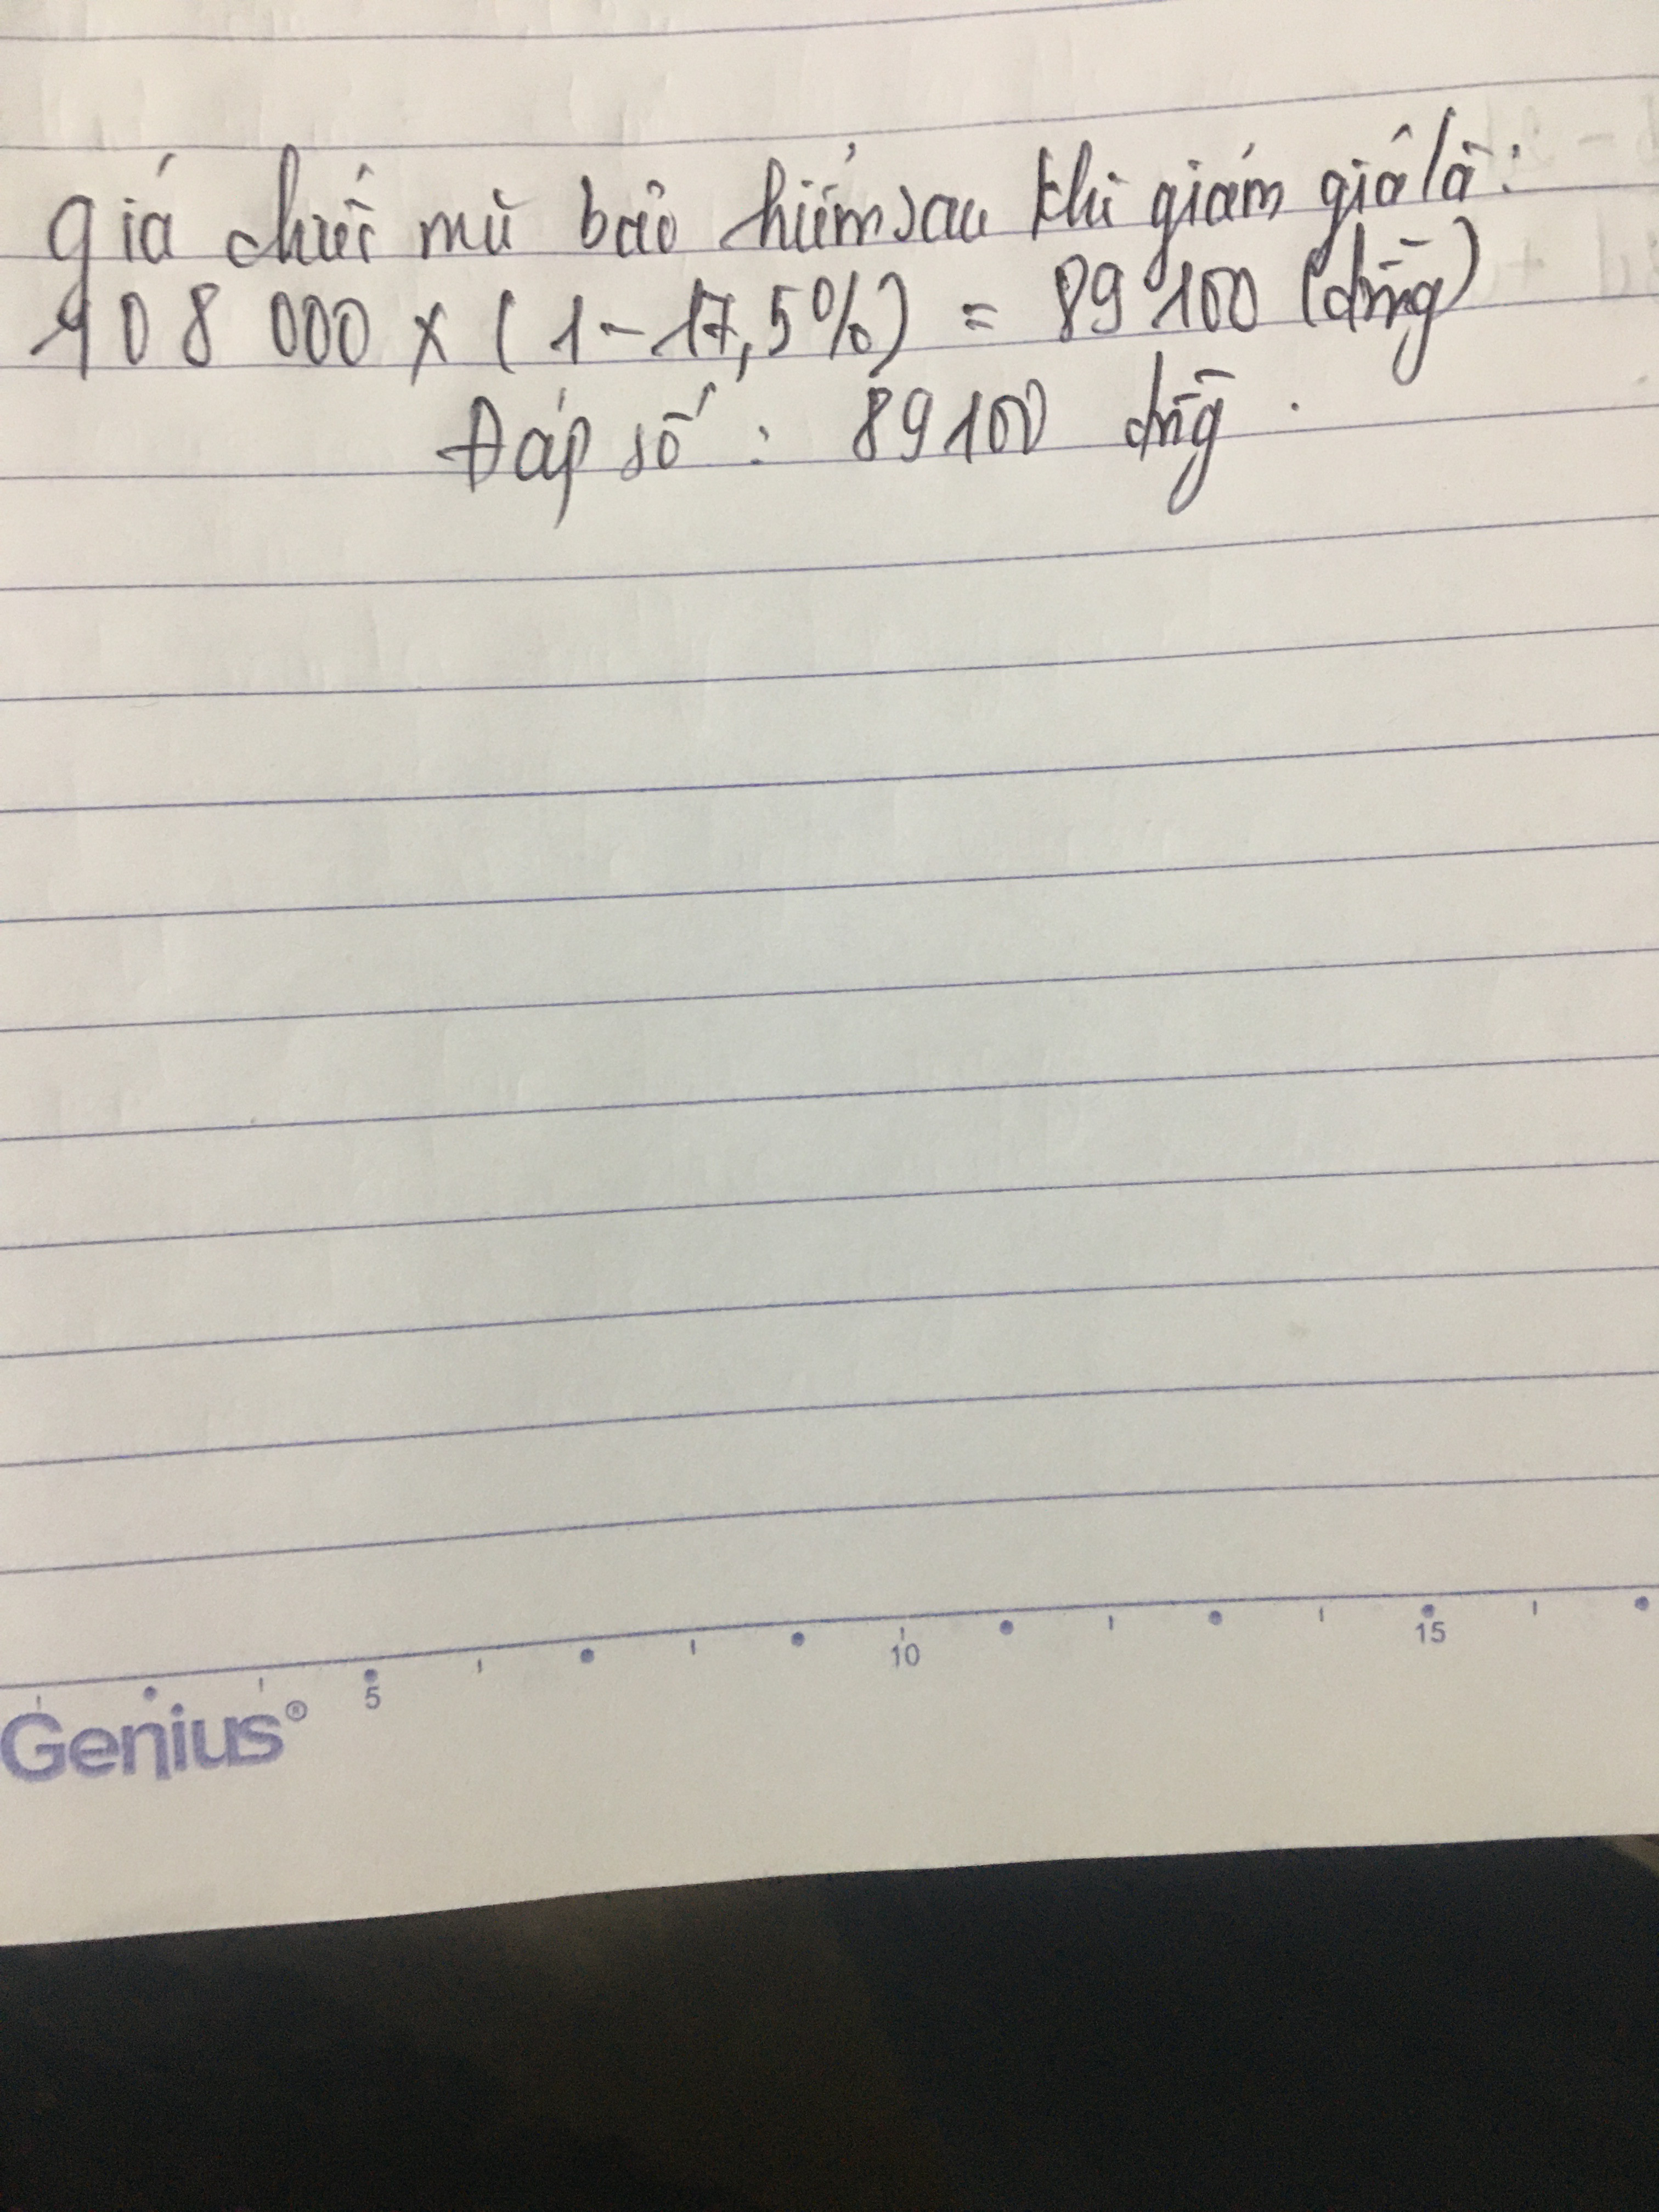 Giá chiếc mũ bảo hiểm sau khi giảm giá là:
108 000 x (1 - 17,5%) = 89 100 (đồng)
Đáp số: 89100 đồng.
5 10 15
Genius®